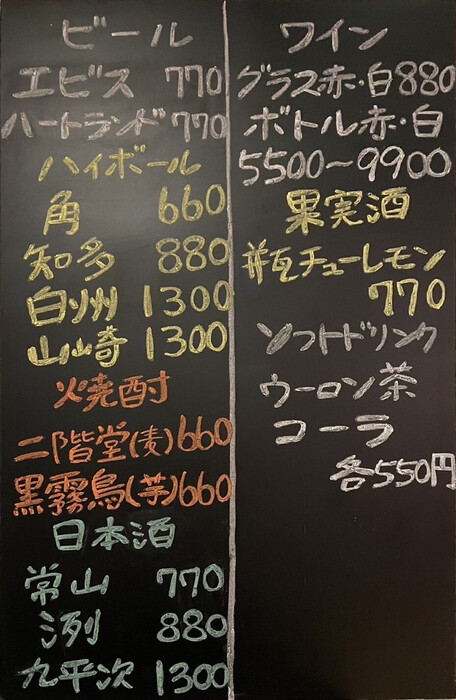 ビール
エビス 770
ハートランド 770
ハイボール
角 660
知多 880
白州 1300
山崎 1300
焼酎
二階堂(麦)660
黒霧島(芋)660
日本酒
常山 770
洌 880
九平次 1300
ワイン
グラス赤・白880
ボトル赤・白
5500〜9900
果実酒
瓶チューレモン
770
ソフトドリンク
ウーロン茶
コーラ
各550円